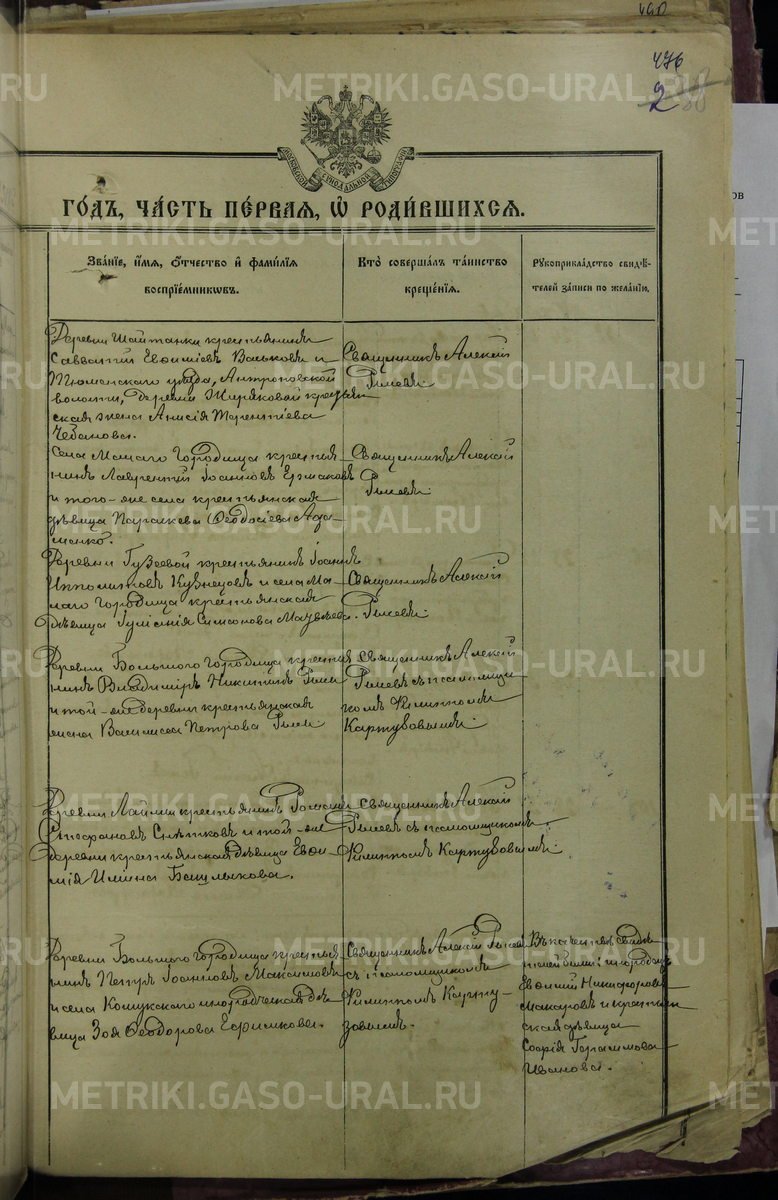 476
2
МОСКОВСКОЙ СѴНОДАЛЬНОЙ ТИПОГРАФІИ
ГОДЪ, ЧАСТЬ ПЕРВАЯ, Ѡ РОДИВШИХСЯ.
Званіе, имя, отчество и фамилія
воспріемниковъ.
Кто совершалъ таинство
крещенія.
Рукоприкладство свидѣ-
телей записи по желанію.
Деревни Шайтанки крестьянинъ
Савватій Евѳиміевъ Васьковъ и
Тюменскаго уѣзда, Антроповской
волости, деревни Жиряковой крестьян
ская жена Анисія Терентіева
Чебанова.
Священникъ Алексій
Села Малаго Городища крестья
нинъ Лаврентій Іоанновъ Ермаковъ
и того-же села крестьянская
дѣвица Параскева Ѳеодосіева Ада-
манко.
Священникъ Алексій
Деревни Гузеевой крестьянинъ Іоаннъ
Ипполитовъ Кузнецовъ и села Ма-
лаго Городища крестьянская
дѣвица Іуліанія Симонова
Священникъ Алексій
Деревни Большого Городища крестья
нинъ Владиміръ Никитинъ
и той-же деревни крестьянская
жена Васписса Петрова
Священникъ Алексій
съ псаломщи-
комъ Филиппомъ
Картузовымъ
Деревни крестьянинъ
Стефановъ и той-же
деревни крестьянская дѣвица Евѳи-
мія Ильина Башлыкова.
Священникъ Алексій
съ псаломщикомъ
Филиппомъ Картузовымъ
Деревни Большого Городища крестья
нинъ Петръ Іоанновъ
и села инородческая дѣ-
вица Зоя Ѳеодорова Ефимкова.
Священникъ Алексій
съ псаломщикомъ
Филиппомъ Карту-
зовымъ.
Въ качествѣ свидѣ
телей были: инородецъ
Евѳимій Никифоровъ
Макаровъ и крестьян
ская дѣвица
Софія Герасимова
Иванова.
METRIKI.GASO-URAL.RU